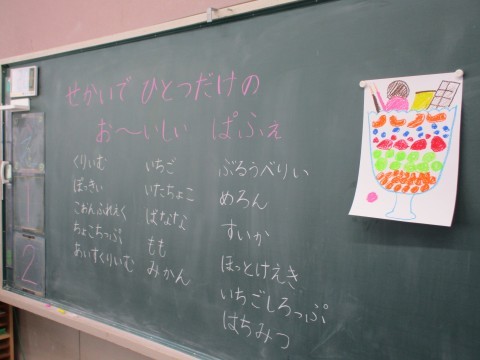 せかいで ひとつだけの
お〜いしい ぱふぇ
くりいむ
ぽっきい
こおんふれえく
ちょこちっぷ
あいすくりいむ
いちご
いたちょこ
ばなな
もも
みかん
ぶるうべりい
めろん
すいか
ほっとけえき
いちごしろっぷ
はちみつ
2